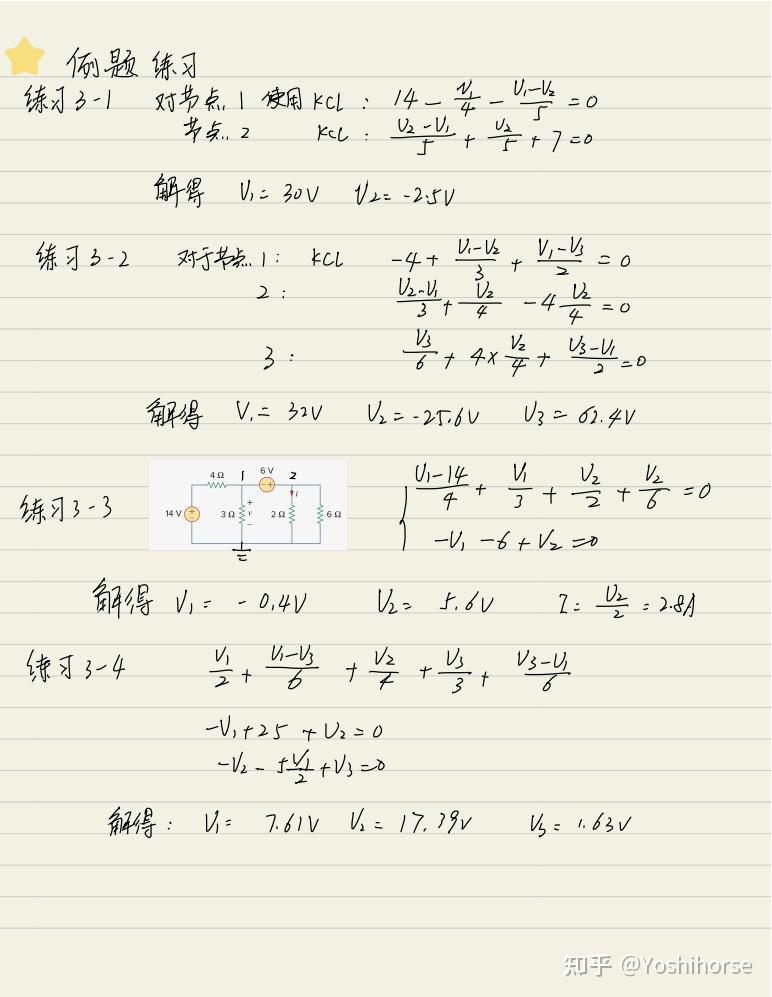 例题 练习
练习3-1 对节点1 使用KCL: 14 - V₁/4 - (V₁-V₂)/5 = 0
节点2 KCL: (V₂-V₁)/5 + V₂/5 + 7 = 0
解得 V₁= 30V V₂= -2.5V
练习3-2 对于节点1: KCL -4 + (V₁-V₂)/3 + (V₁-V₃)/2 = 0
2: (V₂-V₁)/3 + V₂/4 - 4 V₂/4 = 0
3: V₃/6 + 4× V₂/4 + (V₃-V₁)/2 = 0
解得 V₁= 32V V₂= -25.6V V₃= 62.4V
练习3-3
4 Ω 1 6 V 2
14 V + − 3 Ω + v − 2 Ω i 6 Ω
(V₁-14)/4 + V₁/3 + V₂/2 + V₂/6 = 0
-V₁ -6 + V₂ = 0
解得 V₁= -0.4V V₂= 5.6V I= V₂/2 = 2.8A
练习3-4 V₁/2 + (V₁-V₃)/6 + V₂/4 + V₃/3 + (V₃-V₁)/6
-V₁+25 +V₂=0
-V₂- 5 V₁/2 +V₃=0
解得: V₁= 7.61V V₂= 17.39V V₃= 1.63V
知乎 @Yoshihorse